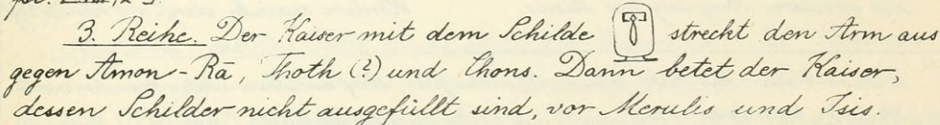 3. Reihe. Der Kaiser mit dem Schilde streckt den Arm aus
gegen Amon-Rā, Thoth (?) und Chons. Dann betet der Kaiser,
dessen Schilder nicht ausgefüllt sind, vor Merulis und Isis.